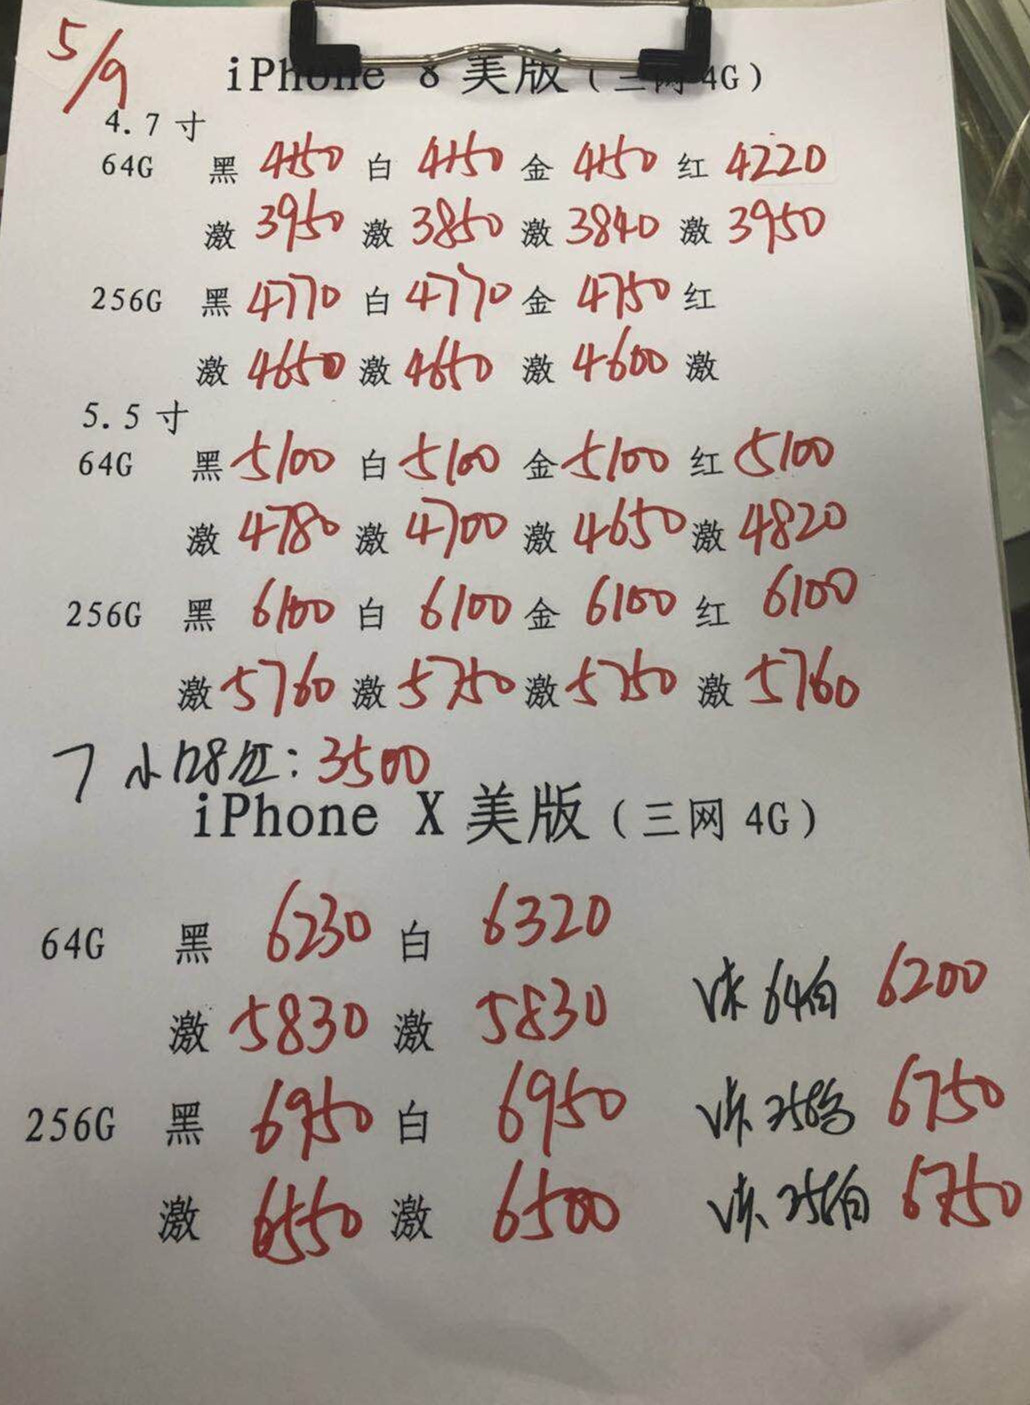 5/9
iPhone 8 美版（三网 4G）
4.7 寸
64G 黑 4150 白 4150 金 4150 红 4220
激 3950 激 3850 激 3840 激 3950
256G 黑 4770 白 4770 金 4750 红
激 4650 激 4650 激 4600 激
5.5 寸
64G 黑 5100 白 5100 金 5100 红 5100
激 4780 激 4700 激 4650 激 4820
256G 黑 6100 白 6100 金 6100 红 6100
激 5760 激 5750 激 5750 激 5760
7 小 128 红：3500
iPhone X 美版（三网 4G）
64G 黑 6230 白 6320
激 5830 激 5830 64白 6200
256G 黑 6950 白 6950 256 6750
激 6550 激 6500 256白 6750